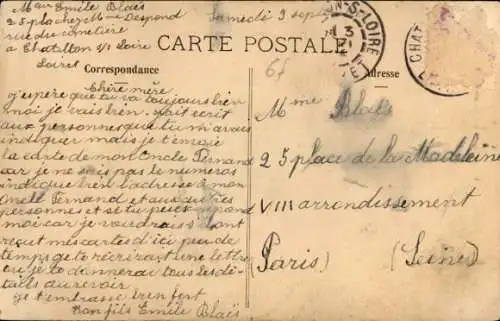 Mr Emile Blais
chez Mme Despond
rue du cimetière
à Chatillon s/s Loire
Loiret
Samedi 3 sept
CARTE POSTALE
Correspondance
Adresse
67
N-S-LOIRE
CHAT
Chère mère
j'espère que tu va toujours bien
moi je vais bien. écrit
aux personnes que tu m'avais
indiquer mais je t'envoie
la carte de mon oncle Fernand
car je ne sais pas le numeros
indique bien l'adresse à mon
oncle Fernand et aux autres
personnes et si tu peus repond
moi car je voudrais s'ils ont
reçut mes cartes d'ici peu de
temps je te récrirait une lettre
ou je te donnerai tous les dé-
tails au revoir
je t'embrasse bien fort
ton fils Emile Blais
Mme Blais
25 place de la Madeleine
VIII arrondissement
Paris (Seine)